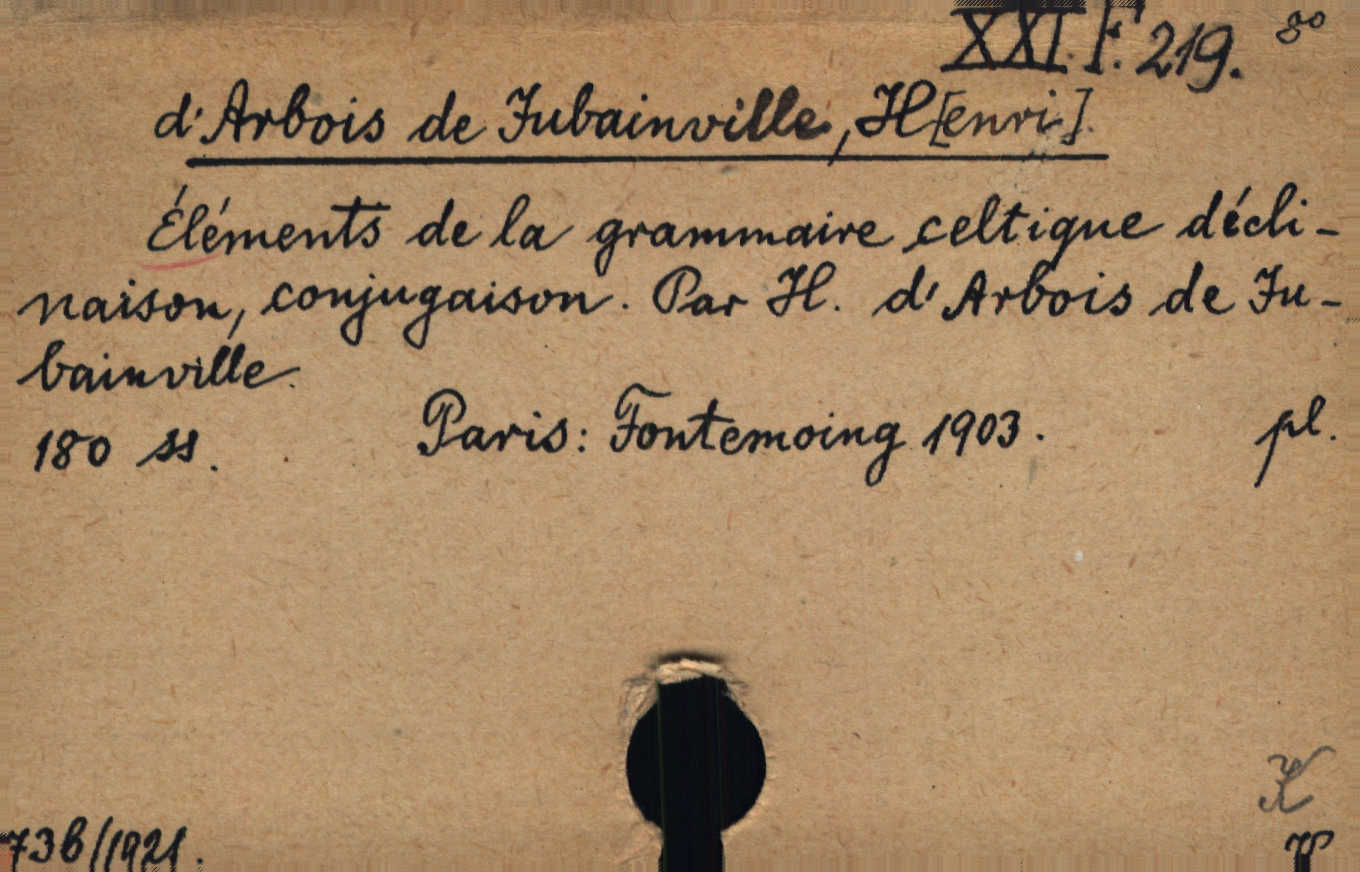 XXI. F. 219. 8°
d'Arbois de Jubainville, H[enri].
Éléments de la grammaire celtique décli-
naison, conjugaison. Par H. d'Arbois de Ju-
bainville.
180 ss. Paris: Fontemoing 1903. pl.
K
736/1921.